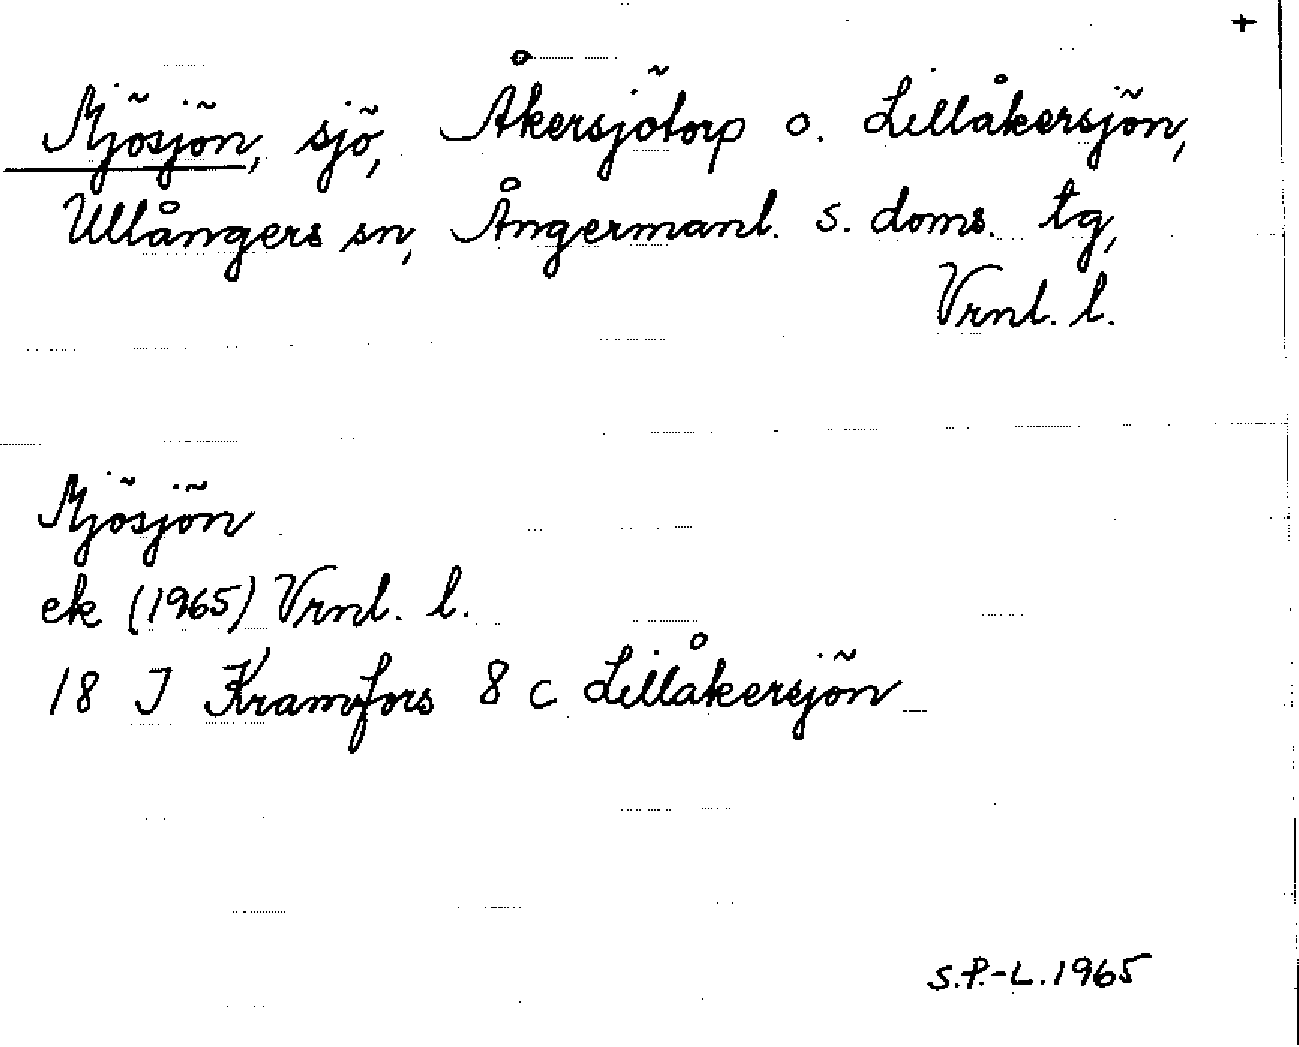 +
Mjösjön, sjö, Åkersjötorp o. Lillåkersjön,
Ullångers sn, Ångermanl. s. doms. tg,
Vrnl. l.
Mjösjön
ek (1965) Vrnl. l.
18 J Kramfors 8 c Lillåkersjön
S.P.-L. 1965